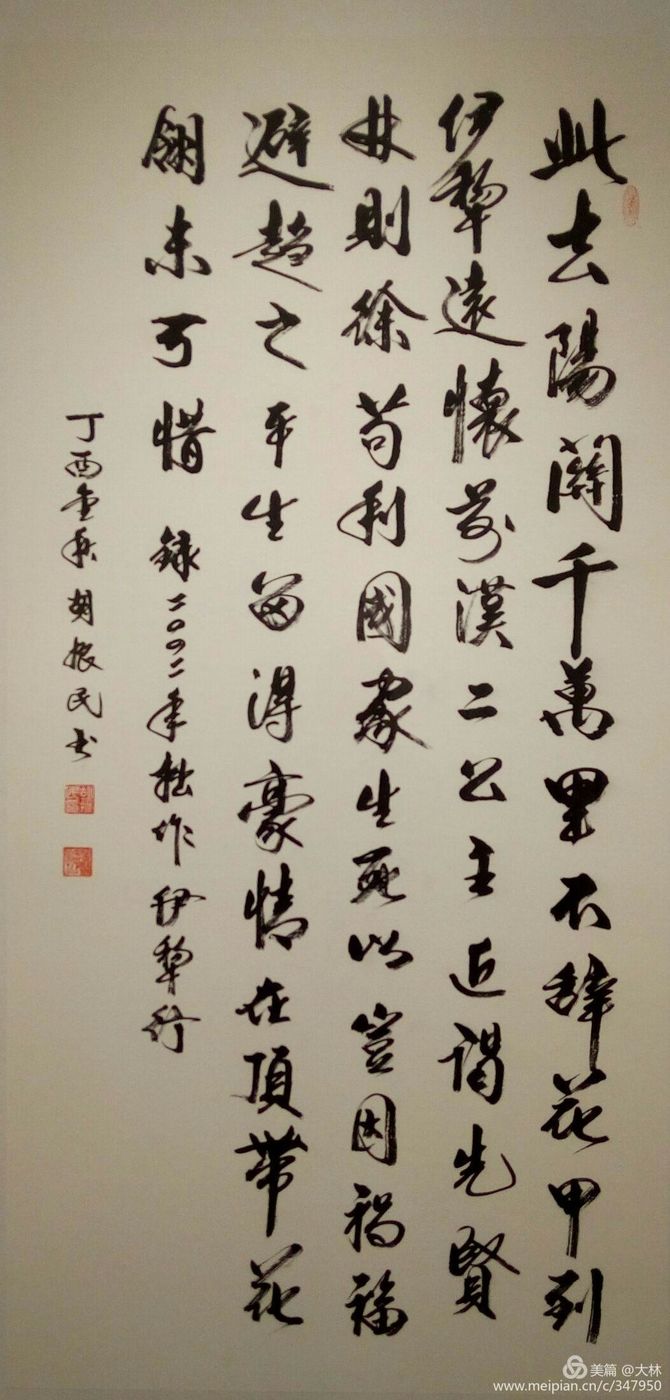 此去陽關千萬里不辭花甲到
伊犂遠懷前漢二公主近謁先賢
林則徐苟利國家生死以豈因禍福
避趨之平生留得豪情在頂帶花
翎未可惜 錄二〇〇二年拙作伊犂行
丁酉金秋胡振民书
美篇 @大林
www.meipian.cn/c/347950